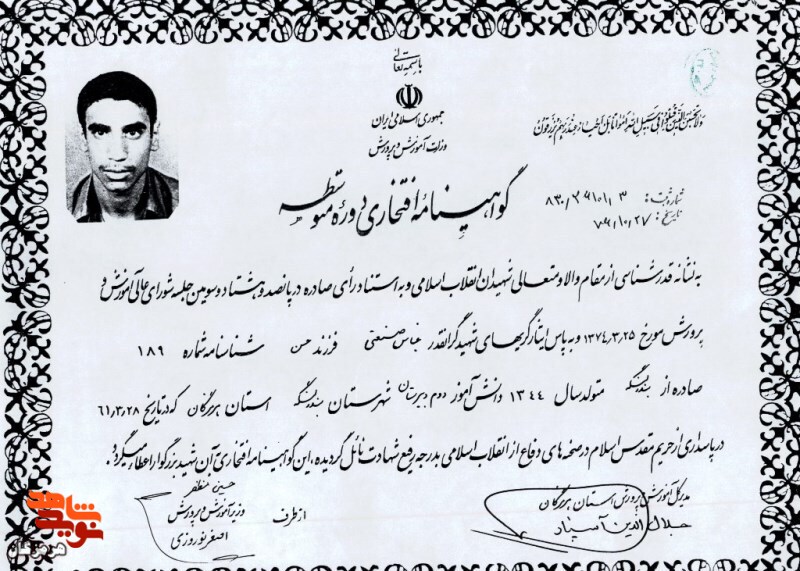 باسمه تعالی
جمهوری اسلامی ایران
وزارت آموزش و پرورش
ولا تحسبن الذین قتلوا فی سبیل الله امواتا بل احیاء عند ربهم یرزقون
گواهینامه افتخاری دوره متوسطه
شماره ثبت:
تاریخ: ۷۶/۱۰/۲۷
به نشانه قدرشناسی از مقام والا و متعالی شهیدان انقلاب اسلامی و به استناد رأی صادره در پانصد و هشتاد و سومین جلسه شورای عالی آموزش و
پرورش مورخ ۱۳۷۴/۳/۲۵ و به پاس ایثارگریهای شهید گرانقدر عباس صنعتی فرزند حسن شناسنامه شماره ۱۸۹
صادره از بندرلنگه متولد سال ۱۳۴۴ دانش آموز دوم دبیرستان شهرستان بندرلنگه استان هرمزگان که در تاریخ ۶۱/۳/۲۸
در پاسداری از حریم مقدس اسلام در صحنه های دفاع از انقلاب اسلامی بدرجه رفیع شهادت نائل گردیده، این گواهینامه افتخاری آن شهید بزرگوار اعطاء میگردد.
مدیرکل آموزش و پرورش استان هرمزگان
جلال الدین
از طرف
حسین مظفر
وزیر آموزش و پرورش
اصغر نوروزی
نوید شاهد
هرمزگان